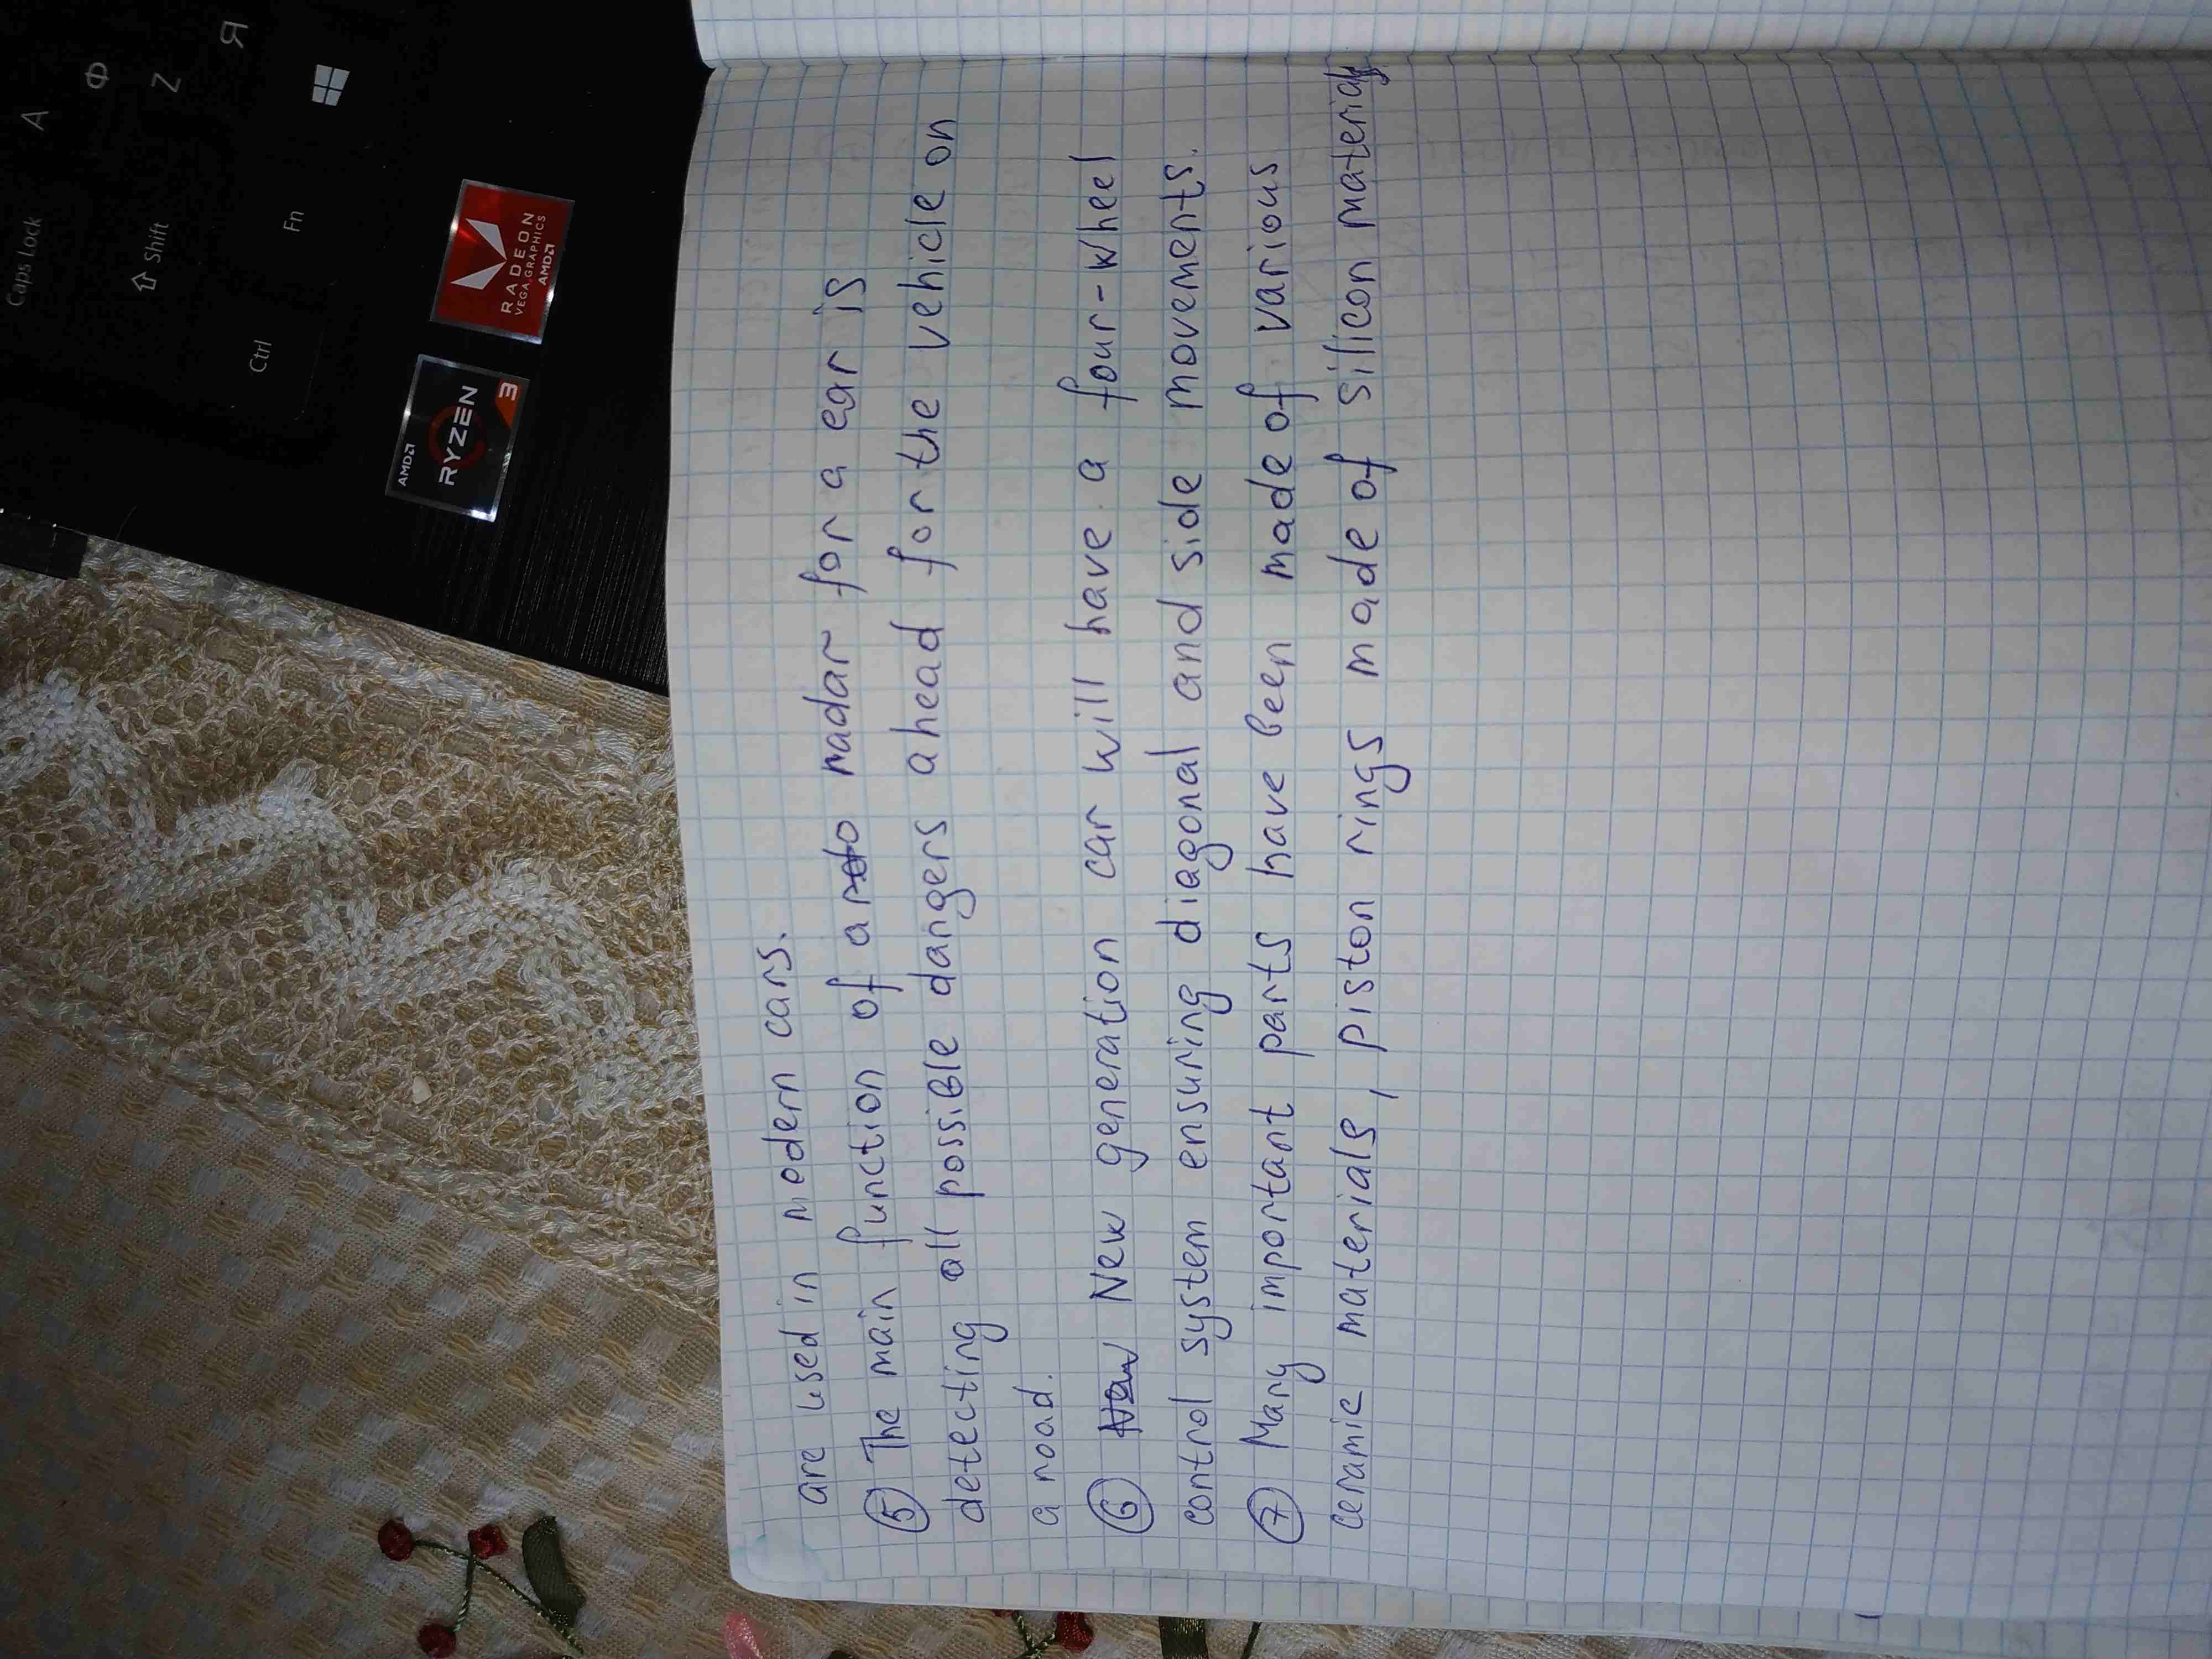 are used in modern cars.
⑤ The main function of a radar for a car is
detecting all possible dangers ahead for the vehicle on
a road.
⑥ New generation car will have a four-wheel
control system ensuring diagonal and side movements.
⑦ Many important parts have been made of various
ceramic materials, piston rings made of silicon materials
Caps Lock
A
Ф
Shift
Z
Я
Ctrl
Fn
AMD
RYZEN
3
RADEON
VEGA GRAPHICS
AMD